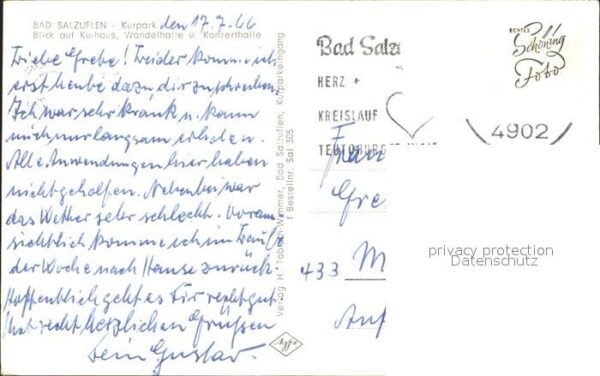 BAD SALZUFLEN - Kurpark
Blick auf Kurhaus, Wandelhalle u. Konzerthalle
den 17.7.66
Liebe Grete! Leider komme ich
erst heute dazu, dir zu schreiben.
Ich war sehr krank u. kann
mich nur langsam erholen.
Alle Anwendungen hier haben
nicht geholfen. Nebenbei war
das Wetter sehr schlecht. Voraus
sichtlich komme ich im Laufe
der Woche nach Hause zurück.
Hoffentlich geht es Dir recht gut
Mit recht herzlichen Grüßen
Dein Gustav.
Verlag H. Wimmer, Bad Salzuflen, Kurparkeingang
Bestellnr. Sal 305
Agfa
Bad Salz
HERZ +
KREISLAUF
TEUTOBURG
ECHTES
Schöning
Foto
4902
Frau
Gre
433 M
Auf
privacy protection
Datenschutz